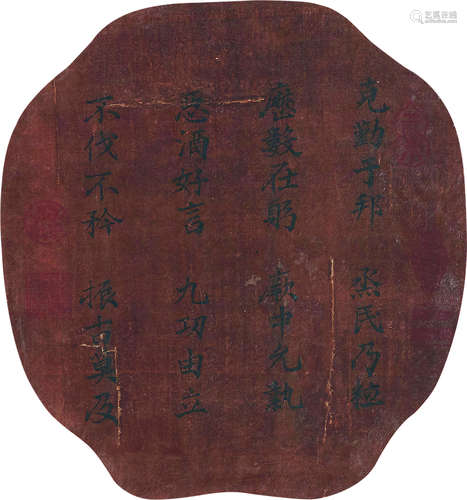 克勤于邦 烝民乃粒
歷數在躬 厥中允執
惡酒好言 九功由立
不伐不矜 振古莫及